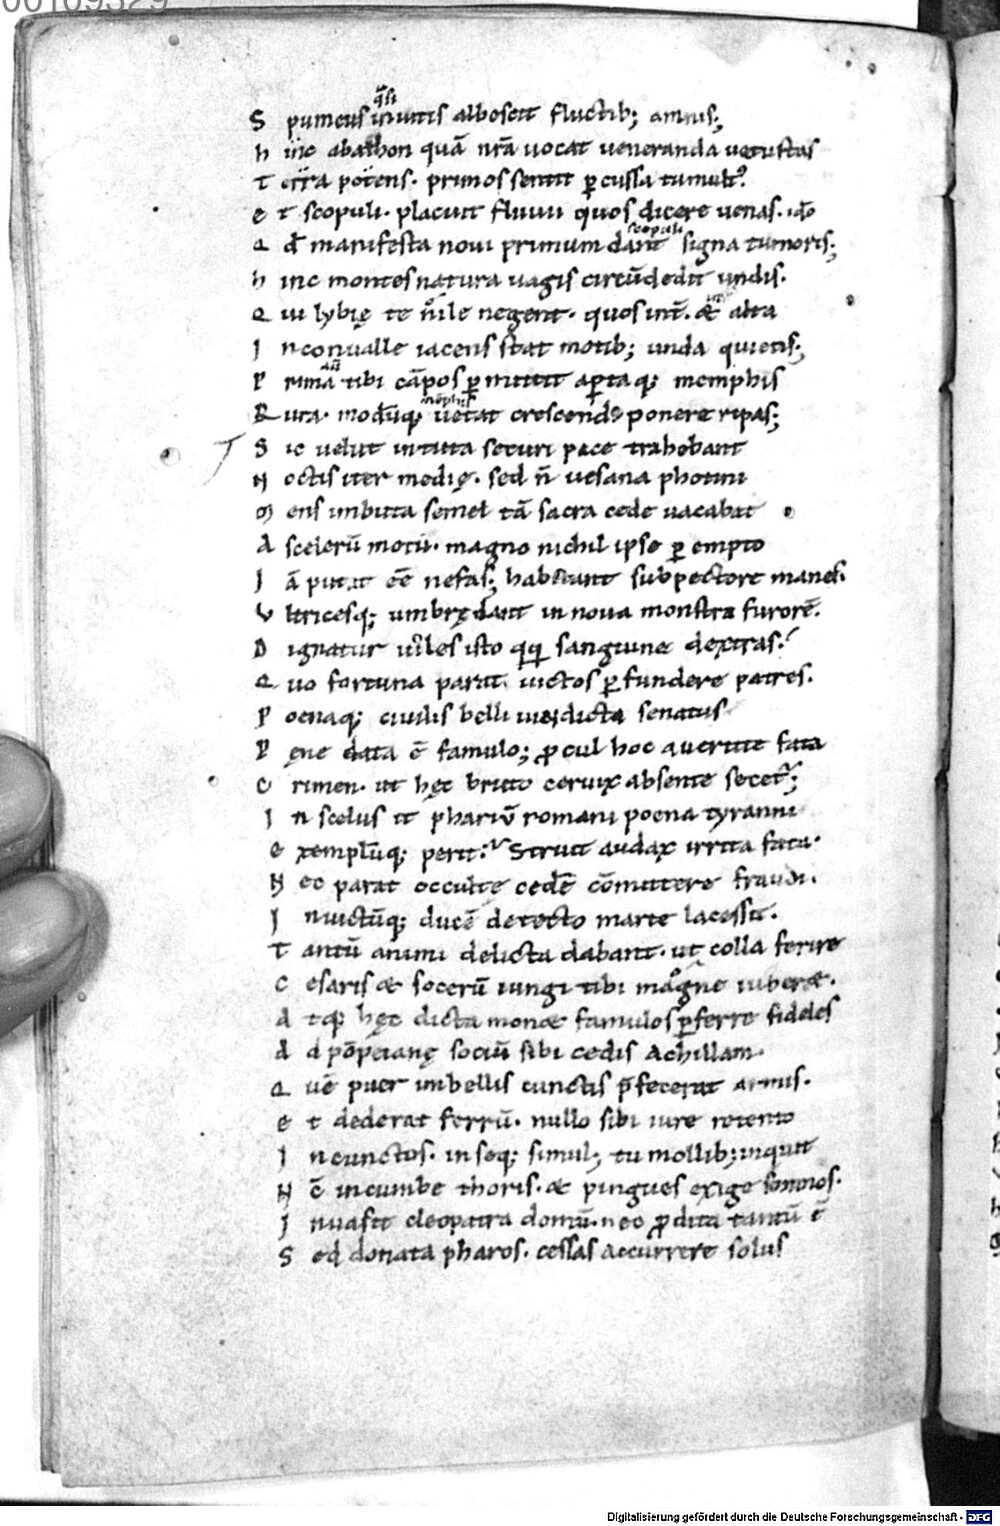 00109329
q̄si
S pumeus inuitis albescit fluctib; amnis;
h inc abathon quā nr̄a uocat ueneranda uetustas
T erra potens. primos sentit ꝑcussa tumult᷒.
e t scopuli. placuit fluuii quos dicere uenas. ido
scopuli
Q d̄ manifesta noui primum dant signa tumoris;
h inc montes natura uagis circūdedit undis.
Q ui lybię te nile negent. quos int̄. & alta
I n conualle iacens stat motib; unda quietis;
P rima tibi cāpos ꝑmittit aꝑtaq; memphis
mēphis
R ura. modūq; uetat crescendi ponere ripas;
S ic uelut in tuta securi pace trahebant
N octis iter medię. sed n̄ uesana photini
M ens imbuta semel tā sacra cede uacabat
A scelerū motu. magno nichil ipse ꝑempto
I ā putat ēē nefas; habitant sub pectore manes.
V ltricesq; umbrę dant in noua monstra furorē.
D ignatur uiles isto qq; sanguine dextras.
Q uo fortuna parat uictos ꝑfundere patres.
P oenaq; ciuilis belli uindicta senatus
P ęne data ē famulo; ꝓcul hoc auertite fata
C rimen. ut hęc bruto ceruix absente secet᷒;
I n scelus it pharivͫ romani poena tyranni
e xemplūq; perit. Struit audax irrita fata.
N ec parat occultę cedē cōmittere fraudi.
I nuictūq; ducē detecto marte lacessit.
T antū animi delicta dabant. ut colla ferire
C esaris & socerū iungi tibi magne iuber&.
A tq; hęc dicta mon& famulos ꝑferre fideles
A d pōpeianę sociū sibi cedis Achillam.
Q uē puer imbellis cunctis p̄fecerat armis.
e t dederat ferrū. nullo sibi iure retento
I n cunctos. in seq; simul; tu mollib; inquit
N c̄ incumbe thoris. & pingues exige somnos.
I nuasit cleopatra domū. nec ꝓdita tantū ē
S ed donata pharos. cessas accurrere solus
Digitalisierung gefördert durch die Deutsche Forschungsgemeinschaft - DFG